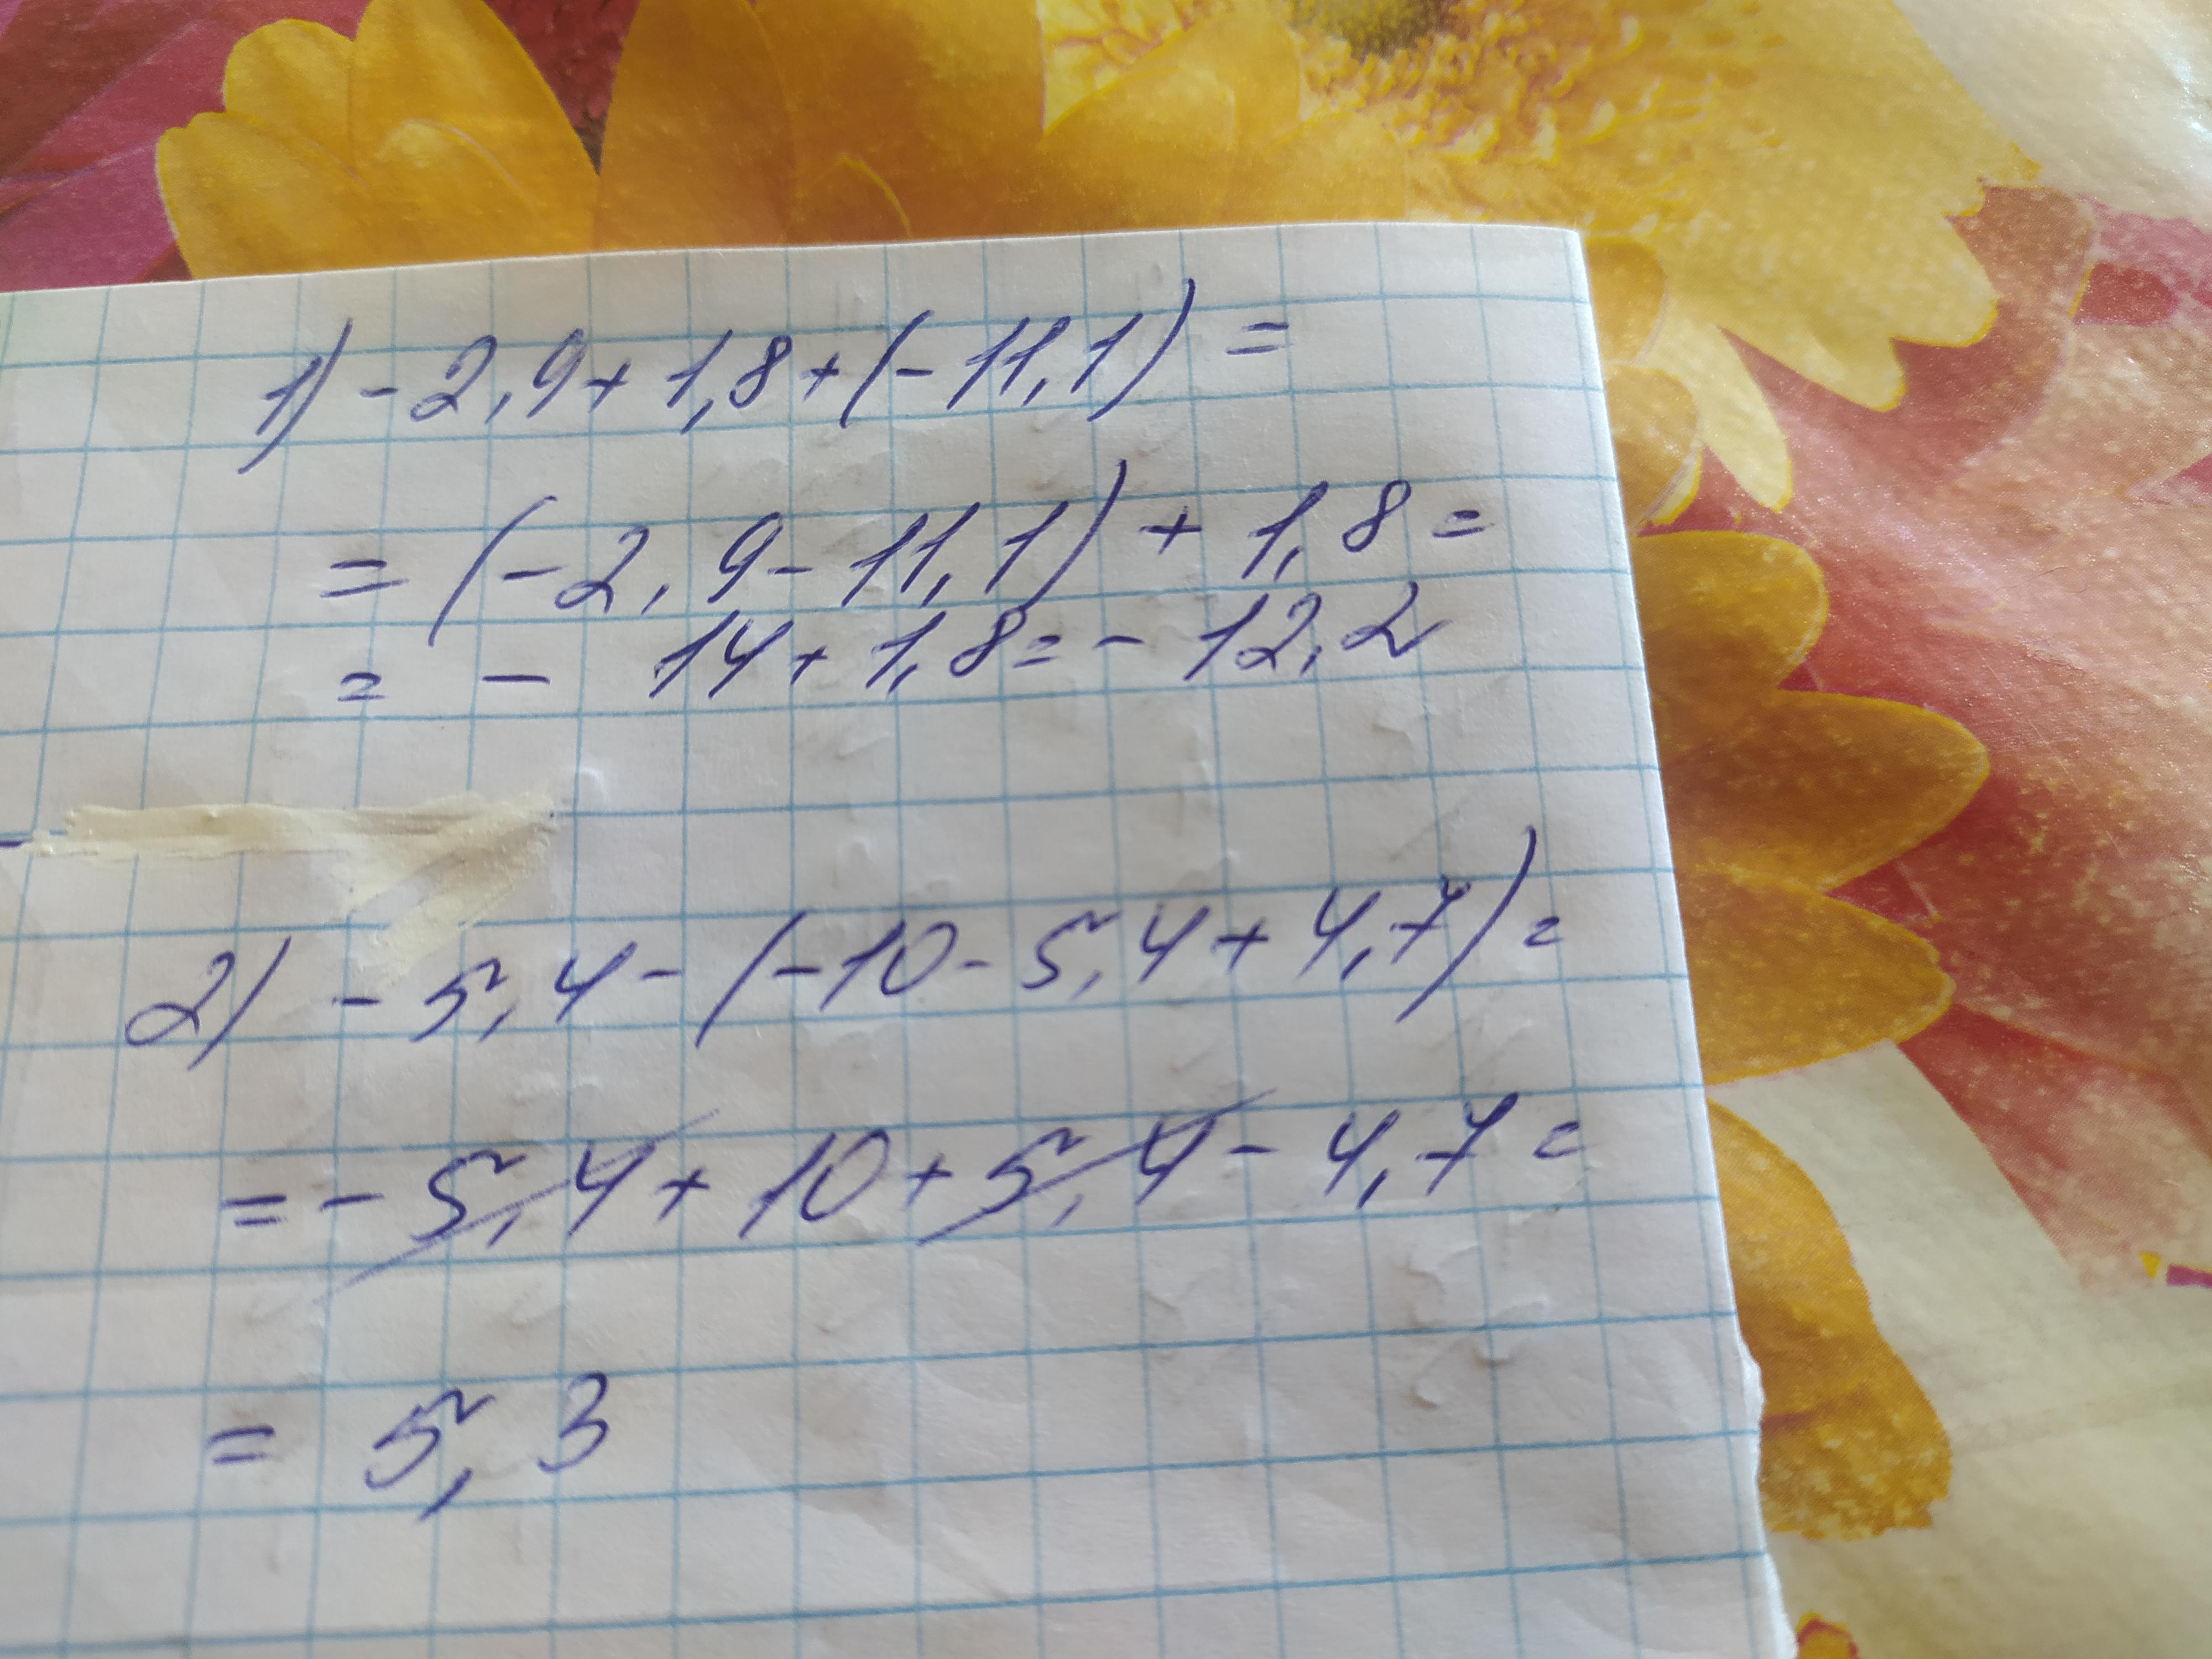 1) -2,9+1,8+(-11,1)=
=(-2,9-11,1)+1,8=
=-14+1,8=-12,2
2) -5,4-(-10-5,4+4,7)=
=-5,4+10+5,4-4,7=
=5,3